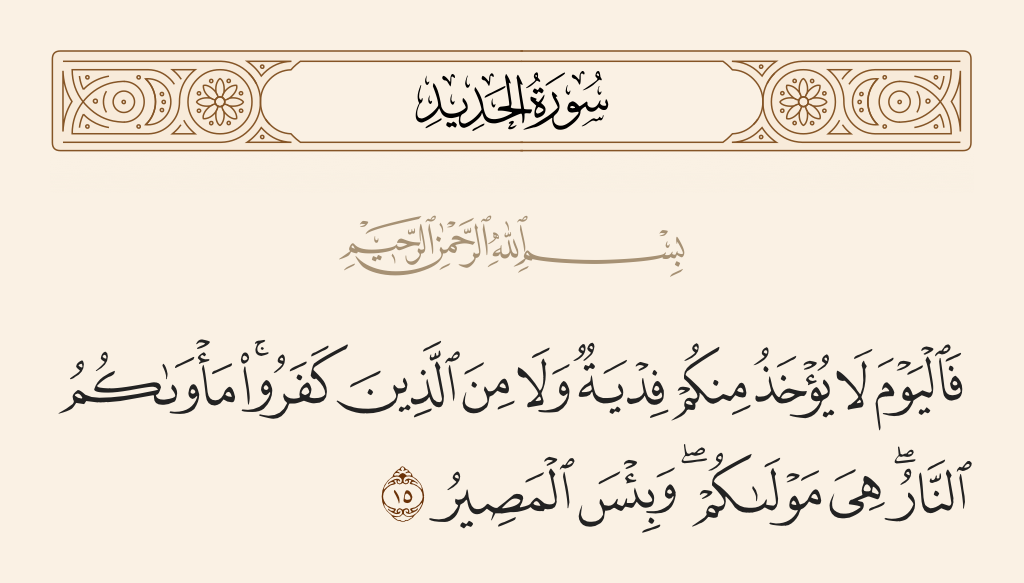 سُورَةُ الحَدِيدِ
بِسْمِ ٱللَّهِ ٱلرَّحْمَٰنِ ٱلرَّحِيمِ
فَٱلْيَوْمَ لَا يُؤْخَذُ مِنكُمْ فِدْيَةٌ وَلَا مِنَ ٱلَّذِينَ كَفَرُوا۟ ۚ مَأْوَىٰكُمُ
ٱلنَّارُ ۖ هِىَ مَوْلَىٰكُمْ ۖ وَبِئْسَ ٱلْمَصِيرُ ١٥